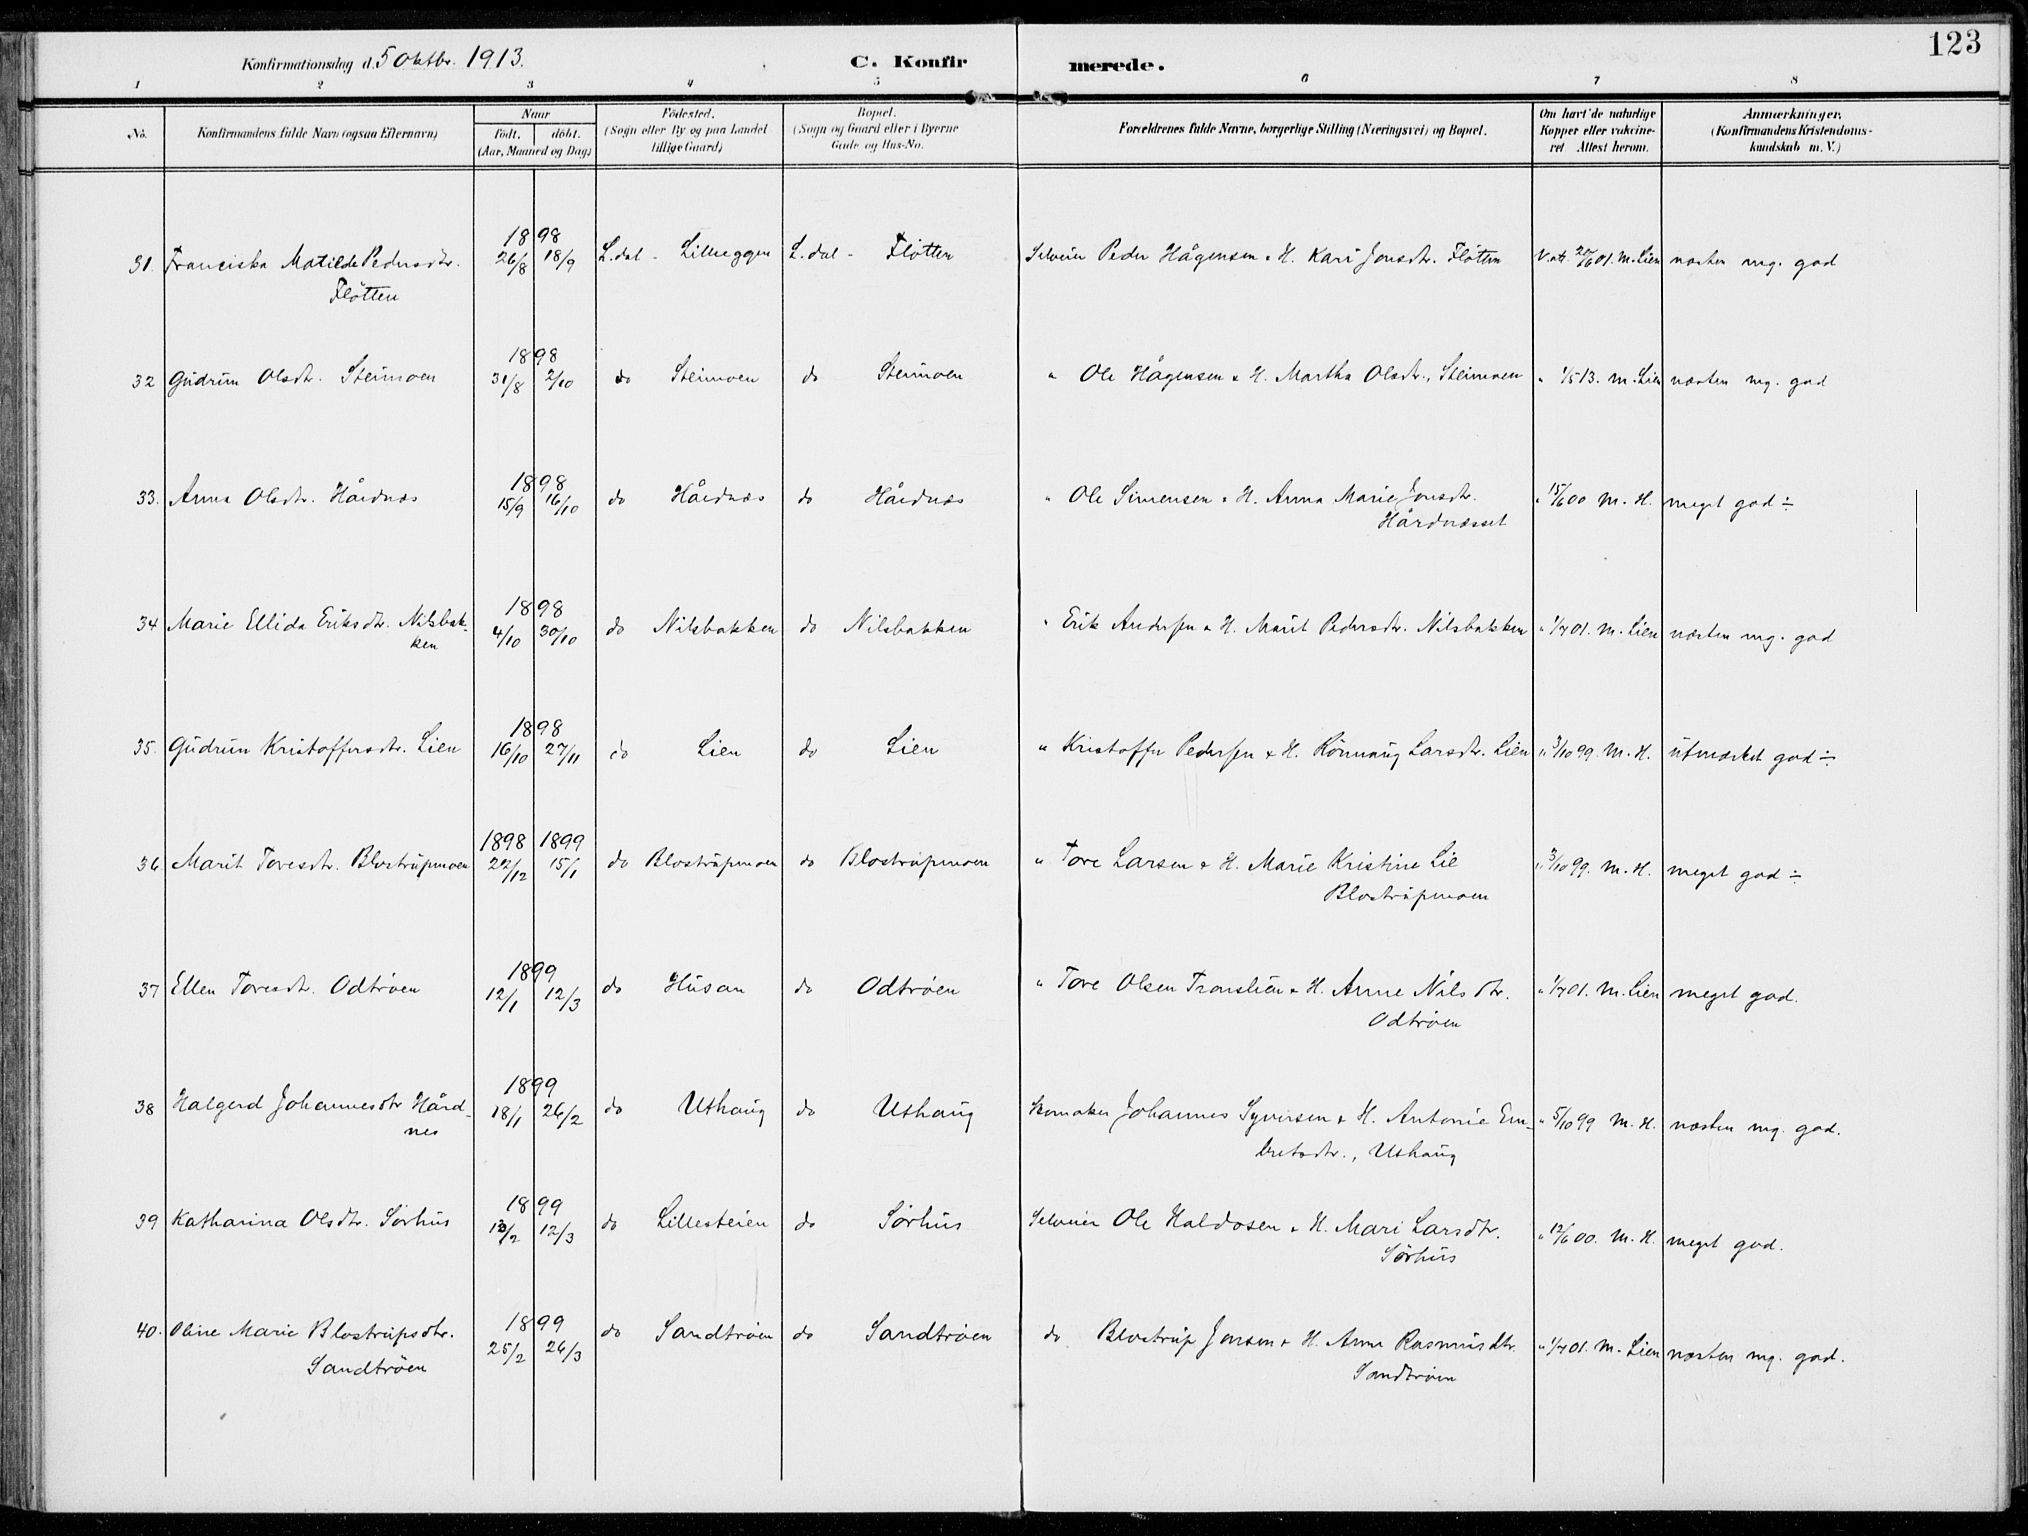 Konfirmationsdag d. 5 oktbr. 1913. C. Konfirmerede. 123
1 2 3 4 5 6 7 8
No. Konfirmandens fulde Navn (ogsaa Efternavn) Naar födt. döbt. (Aar, Maaned og Dag) Födested. (Sogn eller By og paa Landet tillige Gaard) Bopæl. (Sogn og Gaard eller i Byerne Gade og Hus-No. Forældrenes fulde Navne, borgerlige Stilling (Næringsvei) og Bopæl. Om havt de naturlige Kopper eller vakcineret Attest herom. Anmærkninger. (Konfirmandens Kristendomskundskab m. V.)
1898
31. Franciska Matilde Pedersdtr. 26/8 18/9 L.dal - Lilleeggen L.dal - Fløtten Selveier Peder Hågensen & H. Kari Jonsdtr. Fløtten V. att. 20/6 01. M. Lien næsten mg. god
Fløtten
1898
32 Gudrun Olsdtr. Steimoen 31/8 2/10 do Steimoen do Steimoen " Ole Hågensen & H. Martha Olsdtr., Steimoen " 1/5 13. M. Lien næsten mg. god
1898
33. Anna Olsdtr. Hårdnæs 15/9 16/10 do Hårdnæs do Hårdnæs " Ole Simensen & H. Anna Marie Jonsdtr. " 15/6 00 M. H. meget god ÷
Hårdnæsset
1898
34 Marie Ellida Eriksdtr. Nilsbak- 4/10 30/10 do Nilsbakken do Nilsbakken " Erik Andersen & H. Marit Pedersdtr. Nilsbakken " 1/7 01. M. Lien næsten mg. god
ken
1898
35. Gudrun Kristoffersdtr. Lien 16/10 27/11 do Lien do Lien " Kristoffer Pedersen & H. Rønnaug Larsdtr. Lien " 3/10 99. M. H. utmærket god ÷
1898 1899
36 Marit Toresdtr. Blostrupmoen 22/12 15/1 do Blostrupmoen do Blostrupmoen " Tore Larsen & H. Marie Kristine Lie " 3/10 99. M. H. meget god ÷
Blostrupmoen
1899
37 Ellen Toresdtr. Odtrøen 12/1 12/3 do Husan do Odtrøen " Tore Olsen Tronslien & H. Anne Nilsdtr. " 1/7 01. M. Lien meget god.
Odtrøen
1899
38 Halgerd Johannesdtr Hård- 18/1 26/2 do Uthaug do Uthaug Skomaker Johannes Syversen & H. Antonie Em- " 5/10 99 M. H. næsten mg. god.
nes bretsdtr., Uthaug
1899
39 Katharina Olsdtr. Sørhus 13/2 12/3 do Lillesteien do Sørhus Selveier Ole Haldosen & H. Mari Larsdtr. " 12/6 00. M. H. meget god.
Sørhus
1899
40. Oline Marie Blostrupsdtr. 25/2 26/3 do Sandtrøen do Sandtrøen do Blostrup Jonsen & H. Anne Rasmusdtr. " 1/7 01. M. Lien næsten mg. god.
Sandtrøen Sandtrøen